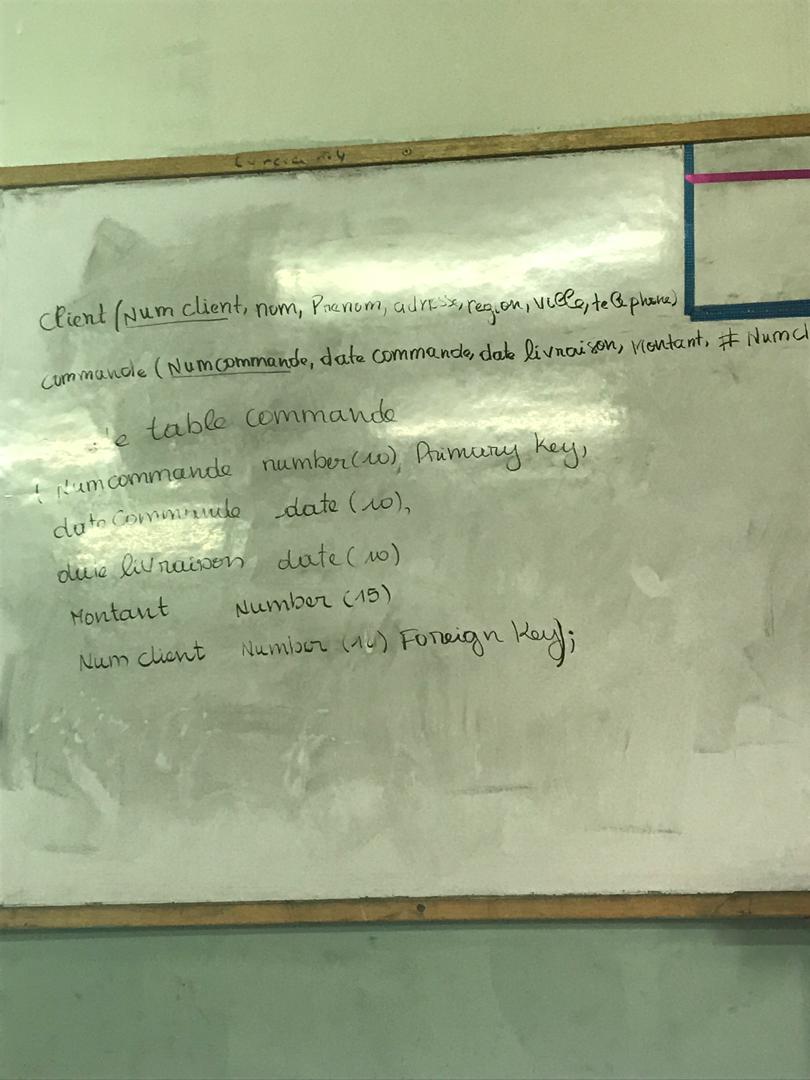 Client (Num client, nom, Prenom, adresse, region, ville, telephone)
commande (Numcommande, date commande, date livraison, Montant, # Numcl
table commande
( Numcommande number(10), Primary Key,
date Commande date (10),
date livraison date (10)
Montant Number (15)
Num client Number (10) Foreign Key);